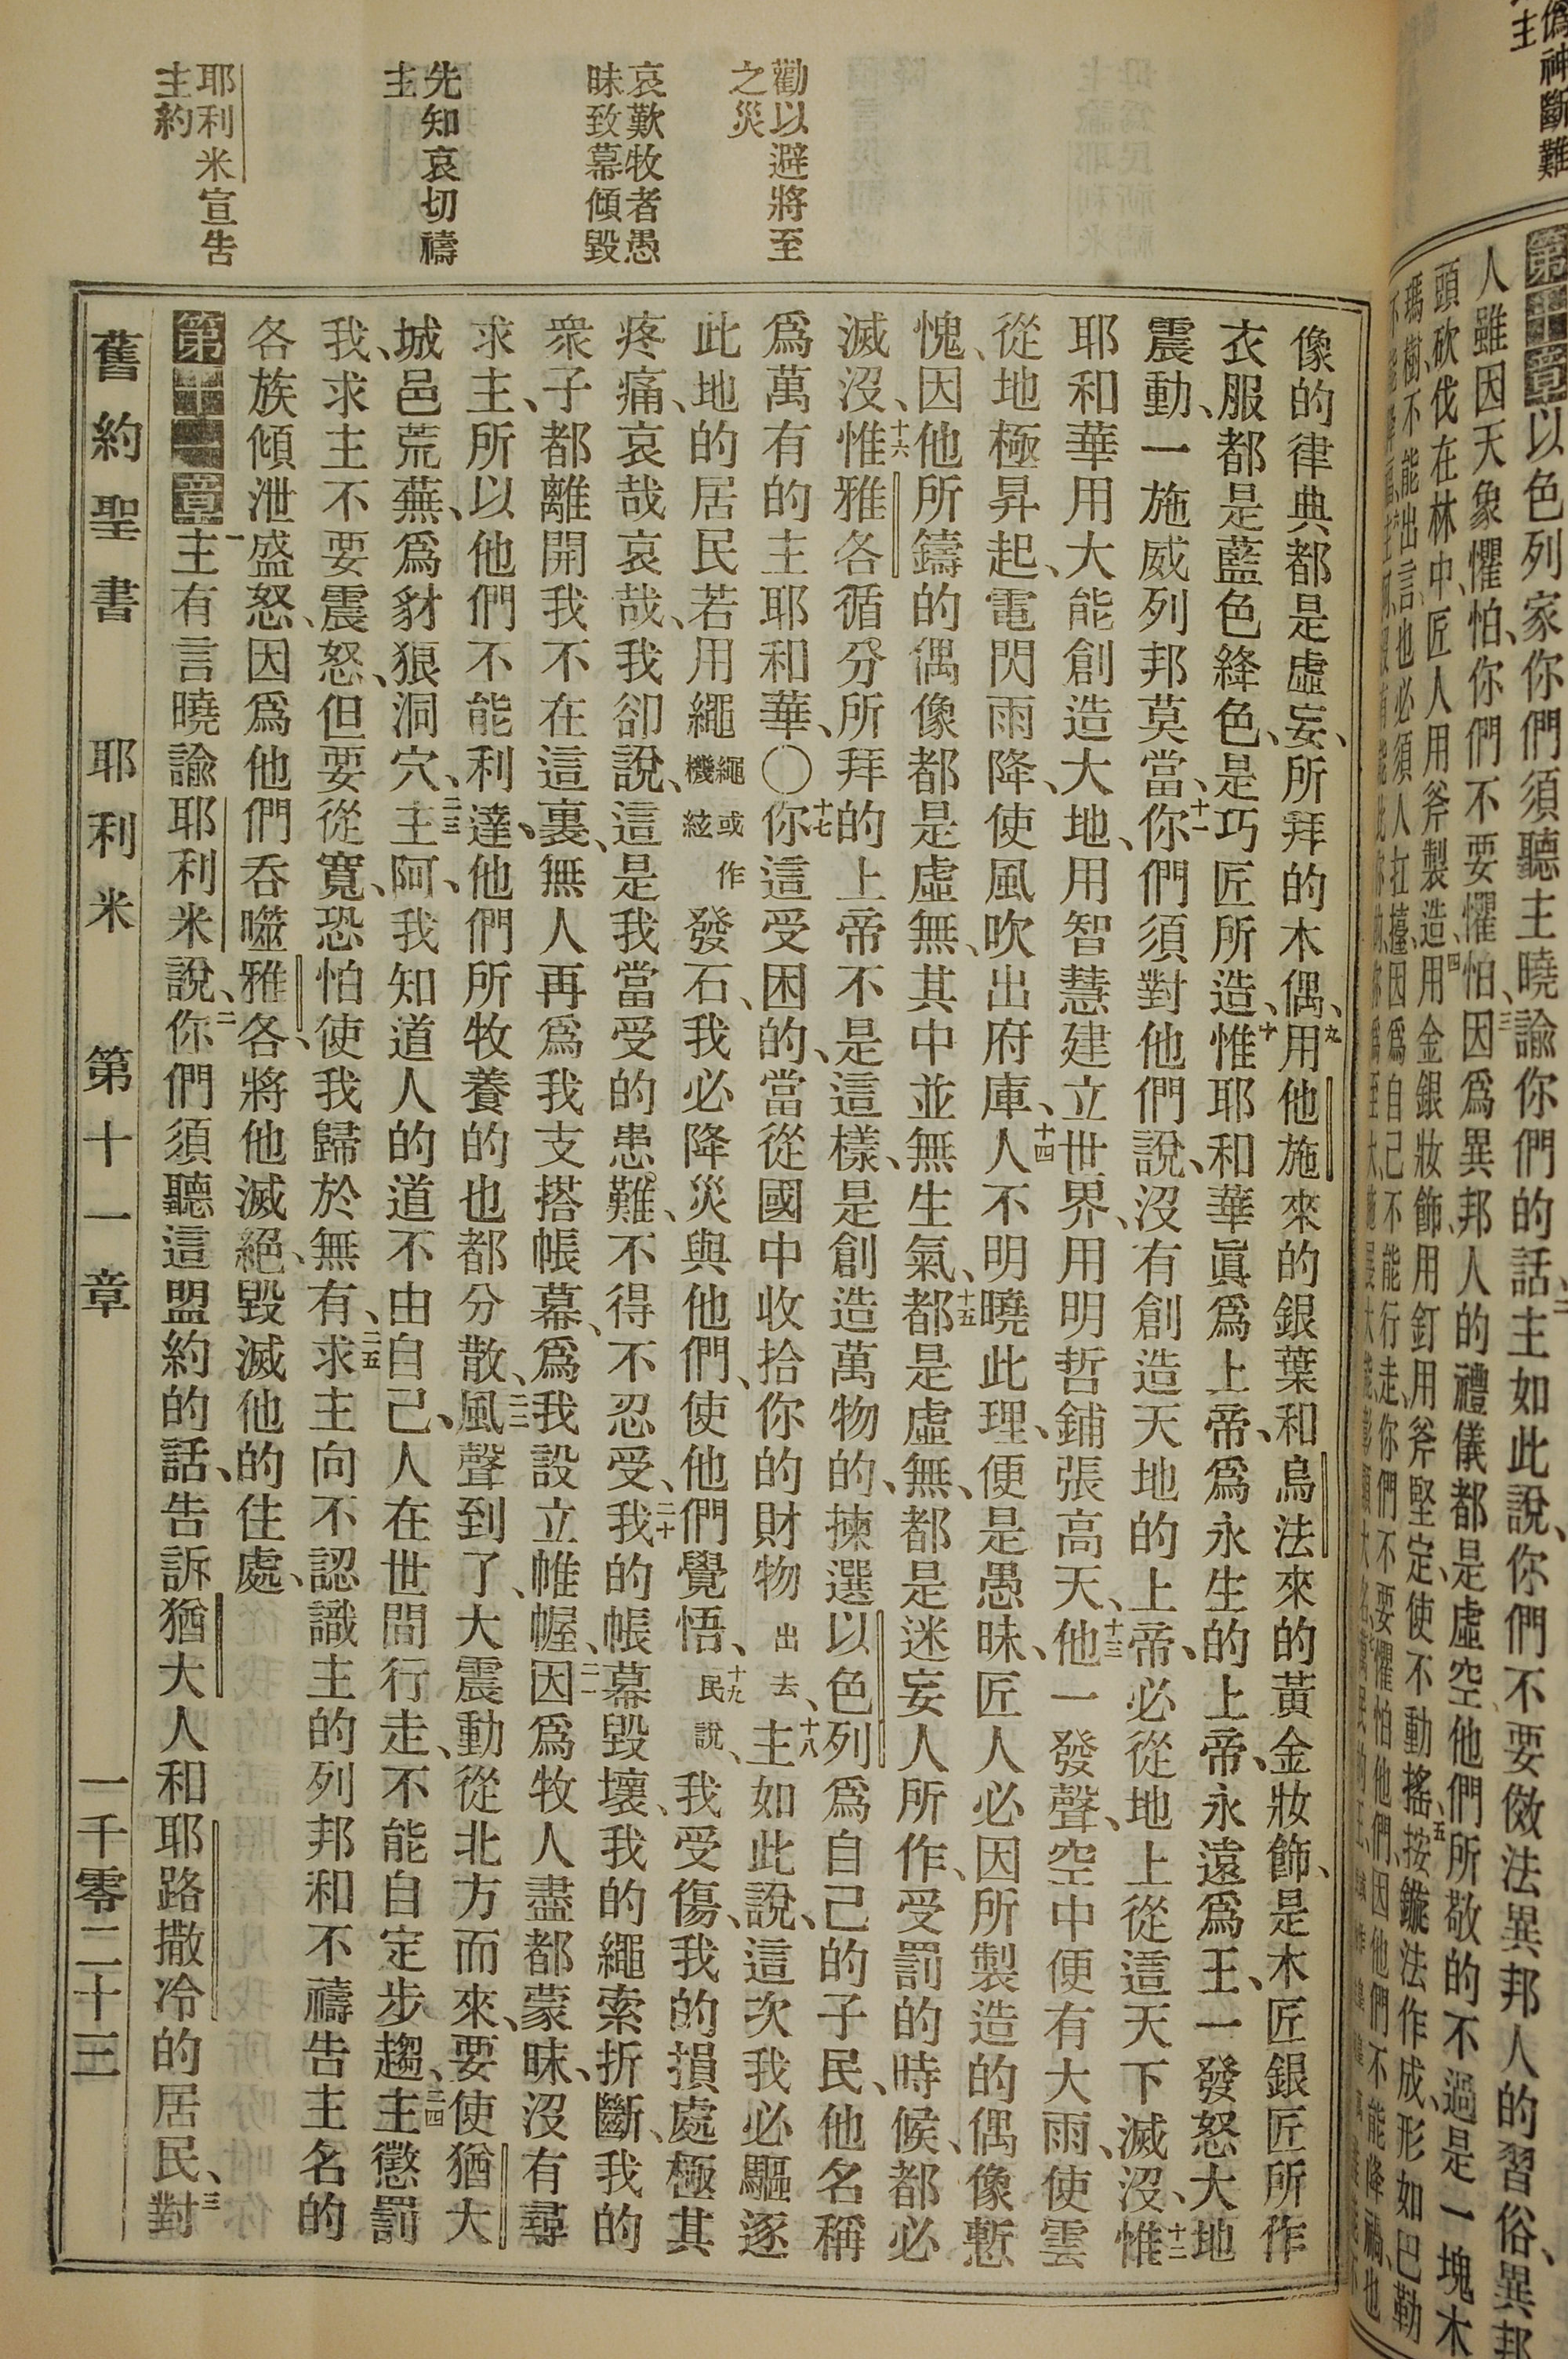 偽神斷難
主
第十章以色列家你們須聽主曉諭你們的話、二主如此說、你們不要傚法異邦人的習俗、異邦
人雖因天象懼怕、你們不要懼怕、三因爲異邦人的禮儀都是虛空他們所敬的不過是一塊木
頭砍伐在林中、匠人用斧製造、四用金銀妝飾、用釘用斧堅定、使不動搖、五按鏇法作成、形如巴勒
瑪樹、不能出言、也必須人扛擡、因爲自己不能行走、你們不要懼怕他們、因他們不能降禍、也
勸以避將至
之災
哀歎牧者愚
昧致幕傾毀
先知哀切禱
主
耶利米宣告
主約
像的律典都是虛妄、所拜的木偶、九用他施來的銀葉和烏法來的黃金妝飾、是木匠銀匠所作
衣服都是藍色絳色、是巧匠所造、十惟耶和華眞爲上帝、爲永生的上帝、永遠爲王、一發怒大地
震動、一施威列邦莫當、十一你們須對他們說、沒有創造天地的上帝、必從地上從這天下滅沒、十二惟
耶和華用大能創造大地、用智慧建立世界、用明哲鋪張高天、十三他一發聲、空中便有大雨、使雲
從地極昇起、電閃雨降、使風吹出府庫、十四人不明曉此理、便是愚昧、匠人必因所製造的偶像慙
愧、因他所鑄的偶像都是虛無、其中並無生氣、十五都是虛無、都是迷妄人所作、受罰的時候、都必
滅沒、十六惟雅各循分所拜的上帝不是這樣、是創造萬物的、揀選以色列爲自己的子民、他名稱
爲萬有的主耶和華、〇十七你這受困的、當從國中收拾你的財物出去、十八主如此說、這次我必驅逐
此地的居民、若用繩繩或作機絃發石、我必降災與他們、使他們覺悟、十九民說、我受傷、我的損處極其
疼痛、哀哉哀哉、我卻說、這是我當受的患難、不得不忍受、二十我的帳幕毀壞、我的繩索折斷、我的
衆子都離開我不在這裏、無人再爲我支搭帳幕、爲我設立帷幄、二一因爲牧人盡都蒙昧、沒有尋
求主、所以他們不能利達、他們所牧養的也都分散、二二風聲到了、大震動從北方而來、要使猶大
城邑荒蕪、爲豺狼洞穴、二三主阿、我知道人的道不由自己、人在世間行走、不能自定步趨、二四主懲罰
我、求主不要震怒、但要從寬、恐怕使我歸於無有、二五求主向不認識主的列邦和不禱告主名的
各族傾泄盛怒、因爲他們吞噬雅各、將他滅絕、毀滅他的住處、
第十一章一主有言曉諭耶利米說、二你們須聽這盟約的話、告訴猶大人和耶路撒冷的居民、三對
舊約聖書 耶利米 第十一章 一千零二十三